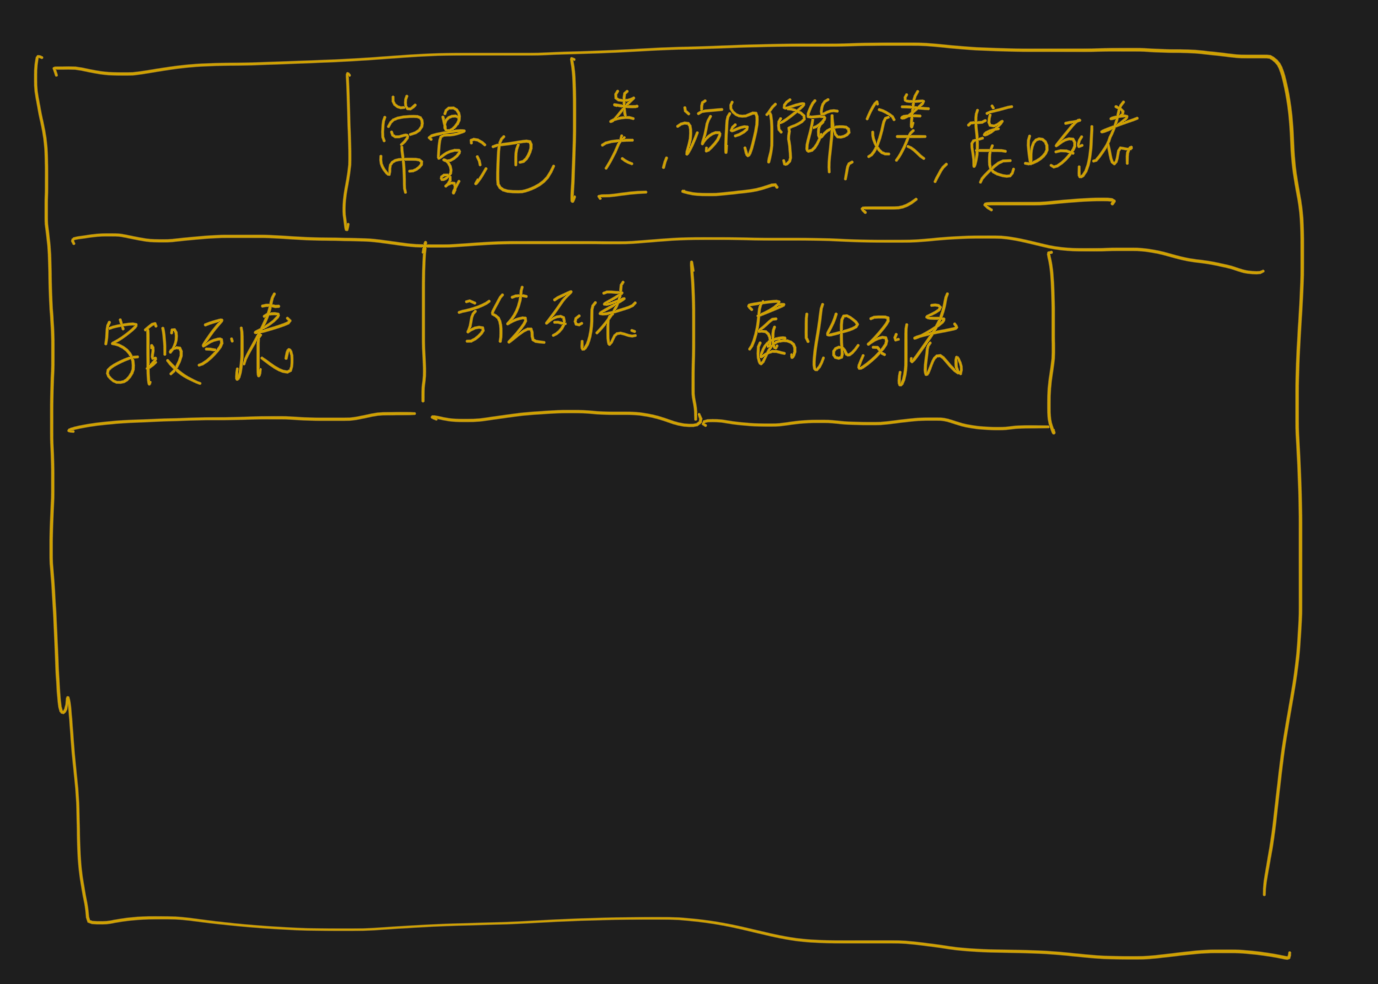 常量池 类,访问修饰,父类,接口列表
字段列表 方法列表 属性列表